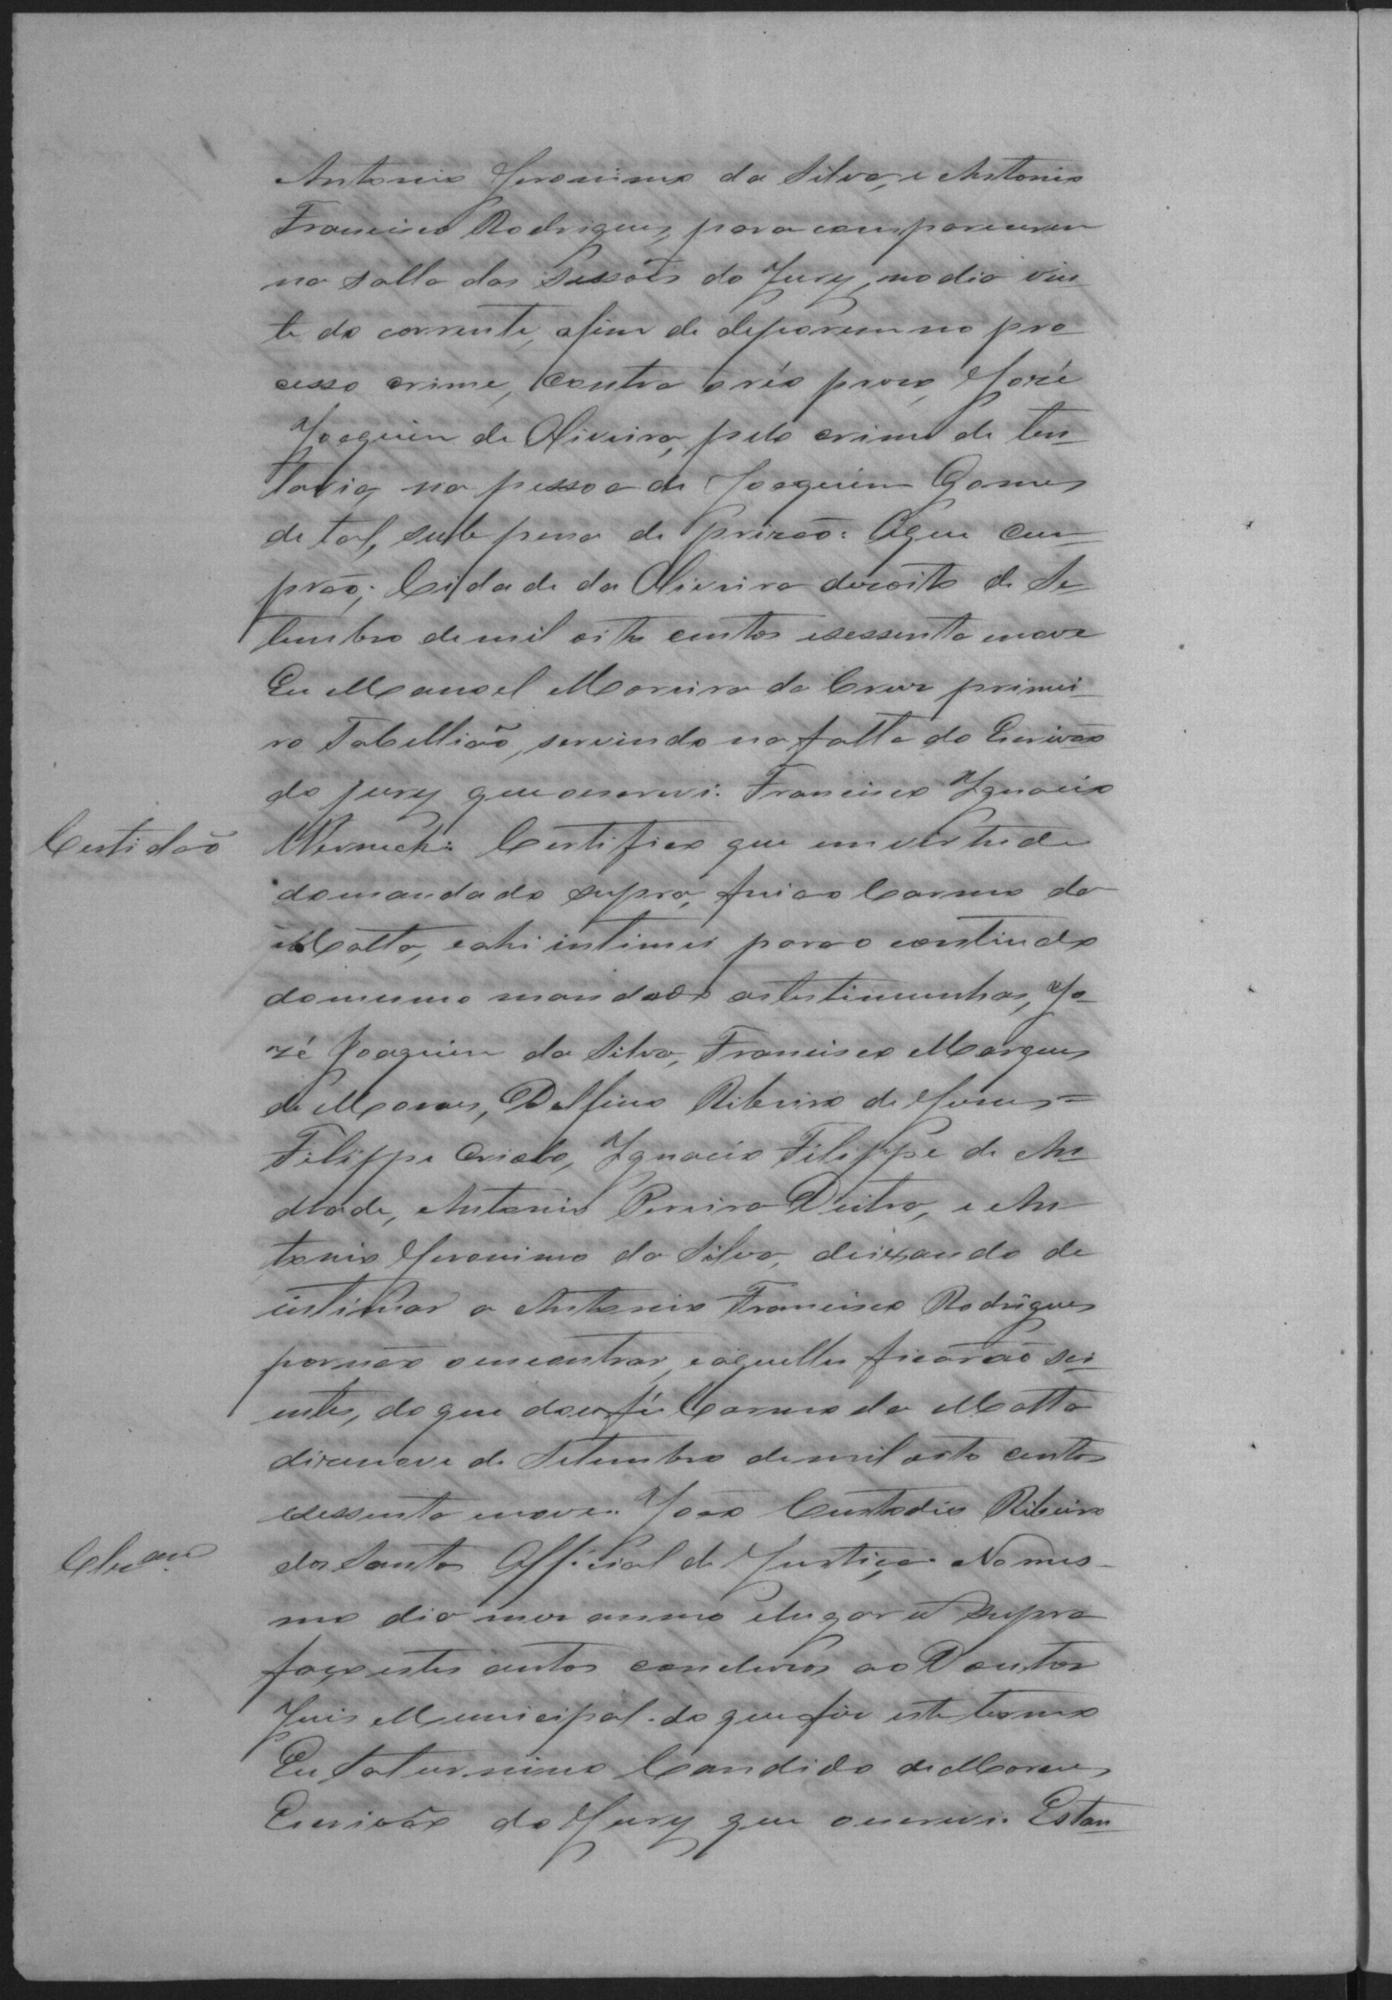 Antonio Jeronimo da Silva, e Antonio
Francisco Rodrigues, para comparecerem
na salla das Sessões do Jury, no dia vin-
te do corrente, afim de deporem no pro
cesso crime, contra o réo prezo, José
Joaquim de Oliveira, pelo crime de ten-
tativa na pessoa de Joaquim Gomes
de tal, sub pena de prizão. O que cum-
prão; Cidade da Oliveira dezoito de Se-
tembro de mil oito centos e sessenta e nove
Eu Manoel Moreira da Cruz primei-
ro Tabellião, servindo na falta do Escrivão
do jury que o escrevi. Francisco Ignacio
Certidão
Werneck. Certifico que em virtude
do mandado supra, fui ao Carmo da
Matta, e ahi intimei para o contiudo
do mesmo mandado as testimunhas, Jo-
zé Joaquim da Silva, Francisco Marques
de Moraes, Delfino Ribeiro de Moraes=
Felippe Criolo, Ignacio Felippe de An-
drade, Antonio Pereira Dutra, e An-
tonio Jeronimo da Silva, deixando de
intimar a Antonio Francisco Rodrigues
por não o encontrar, e aquelles ficarão sci-
entes, do que dou fé Carmo da Matta
dizenove de Setembro de mil oito centos
e sessenta e nove. João Custodio Ribeiro
Clu.am
dos Santos Official de Justiça. No mes-
mo dia mez anno e lugar ut supra
faço estes autos concluzos ao Doutor
Juis Municipal. do que fiz este termo
Eu Saturnino Candido de Moraes
Escrivão do Jury que o escrevi. Estan-